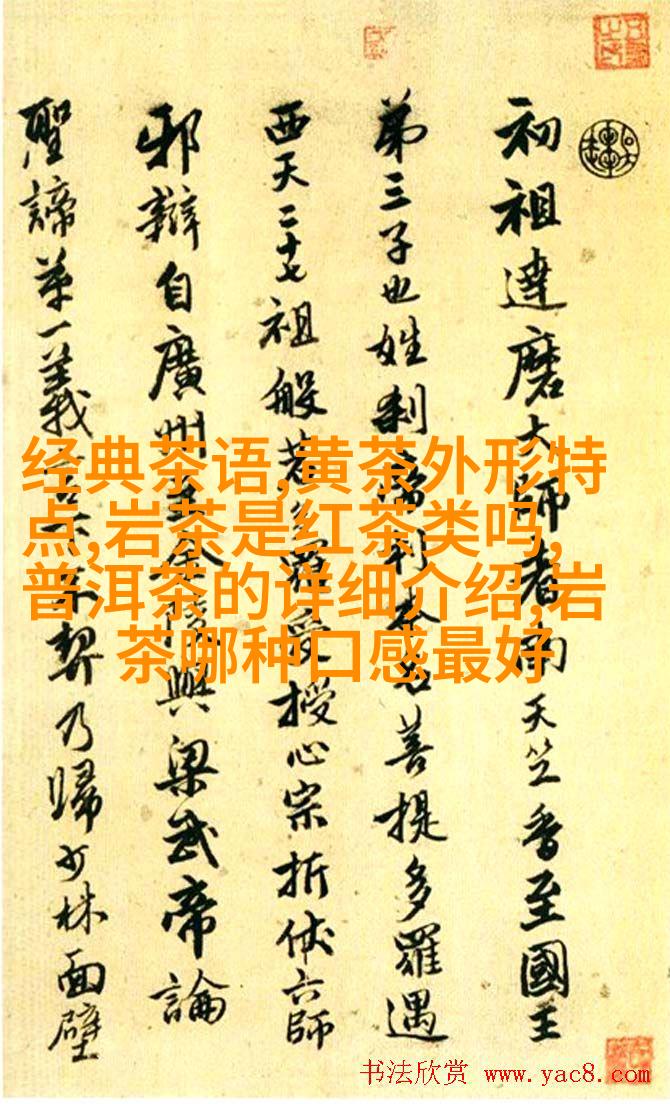 初祖達磨大師者南天竺香至國王
第三子也姓刹帝利本名菩提多羅遇
西天二十七祖般若多羅受授心宗折伏六師
邪辯自廣州至金陵與梁武帝論
聖諦第一義言不契乃歸少林面壁
经典茶语,黄茶外形特
点,岩茶是红茶类吗,
普洱茶的详细介绍,岩
茶哪种口感最好
书法欣赏 www.yac8.com